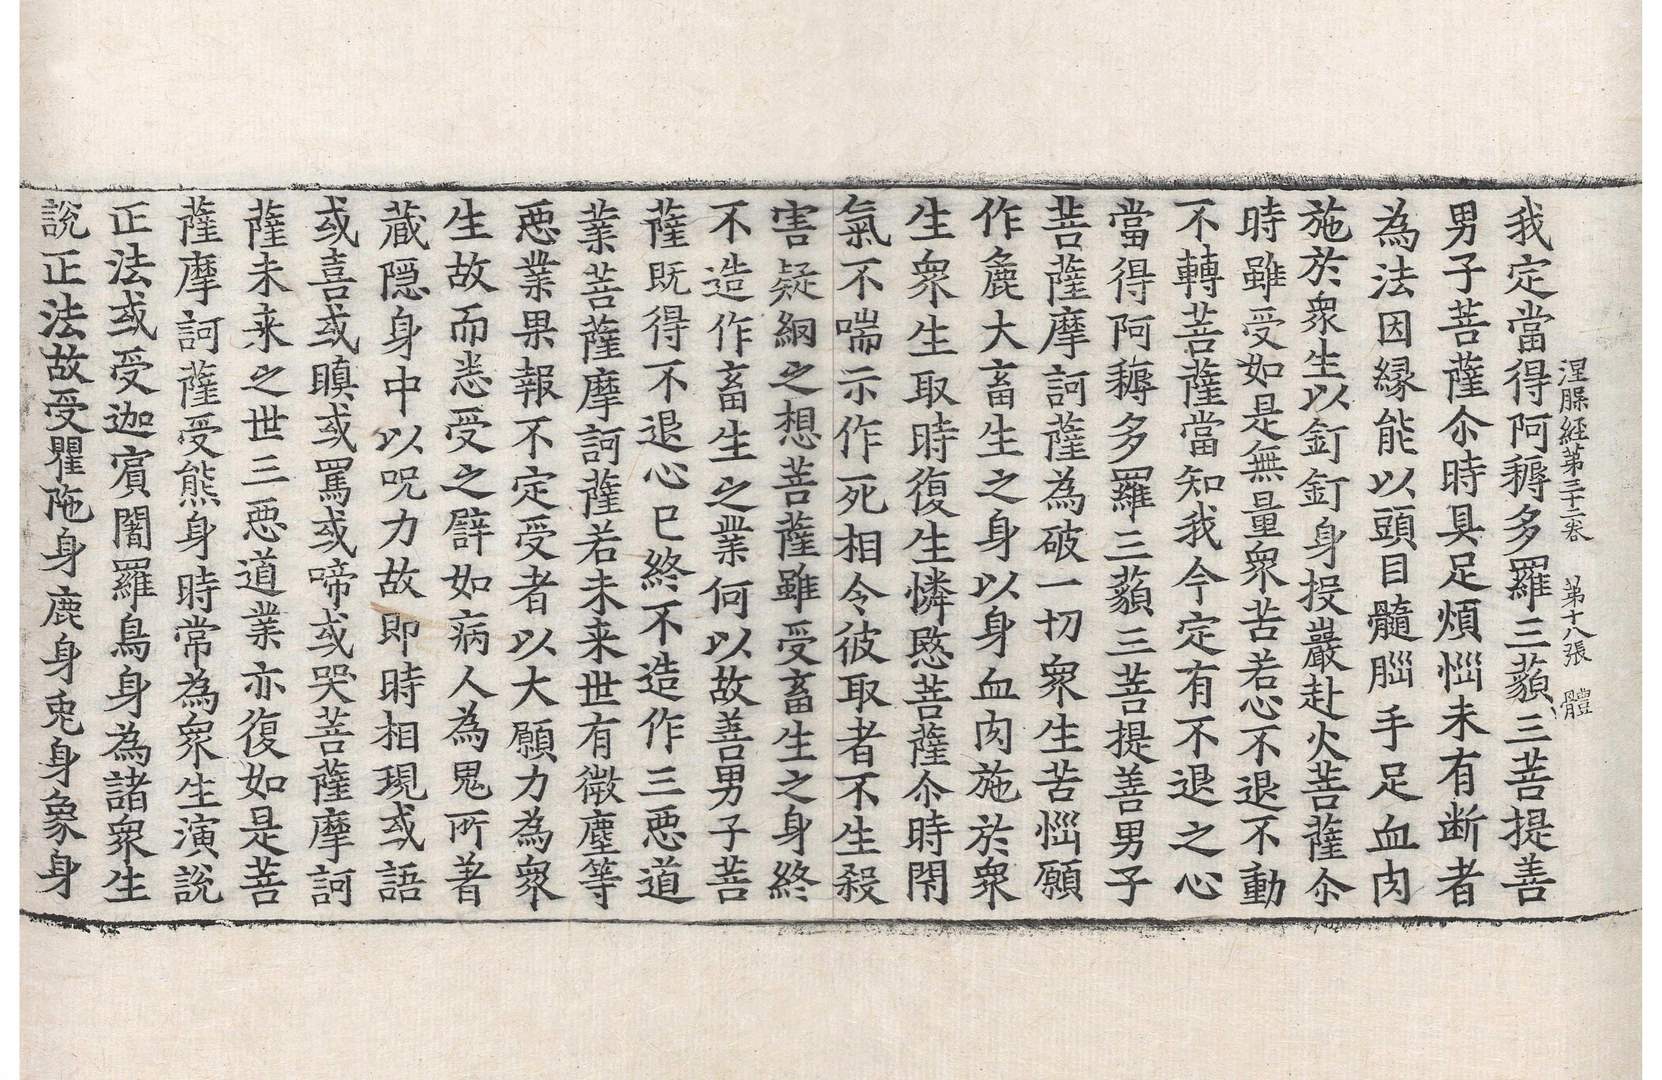 涅槃経第三十二卷 第十八張 體
我定當得阿耨多羅三藐三菩提善
男子菩薩尒時具足煩惱未有断者
為法因縁能以頭目髓腦手足血肉
施於衆生以釘釘身投巖赴火菩薩尒
時雖受如是無量衆苦若心不退不動
不轉菩薩當知我今定有不退之心
當得阿耨多羅三藐三菩提善男子
菩薩摩訶薩為破一切衆生苦惱願
作麁大畜生之身以身血肉施於衆
生衆生取時復生憐愍菩薩尒時閇
氣不喘示作死相令彼取者不生殺
害疑網之想菩薩雖受畜生之身終
不造作畜生之業何以故善男子菩
薩既得不退心已終不造作三惡道
業菩薩摩訶薩若未来世有微塵等
惡業果報不定受者以大願力為衆
生故而悉受之譬如病人為鬼所著
藏隠身中以呪力故即時相現或語
或喜或瞋或罵或啼或哭菩薩摩訶
薩未来之世三惡道業亦復如是菩
薩摩訶薩受熊身時常為衆生演說
正法或受迦賔闍羅鳥身為諸衆生
說正法故受瞿陁身鹿身兎身象身